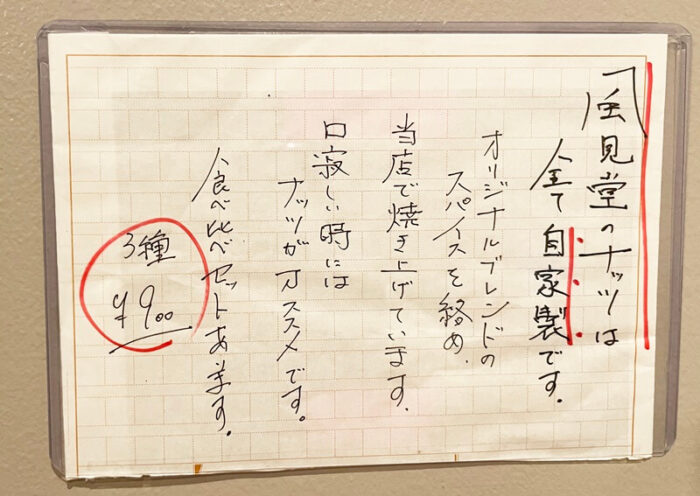 風見堂のナッツは
全て自家製です。
オリジナルブレンドの
スパイスを絡め、
当店で焼き上げています。
口寂しい時には
ナッツがオススメです。
食べ比べセットあります。
3種
¥900